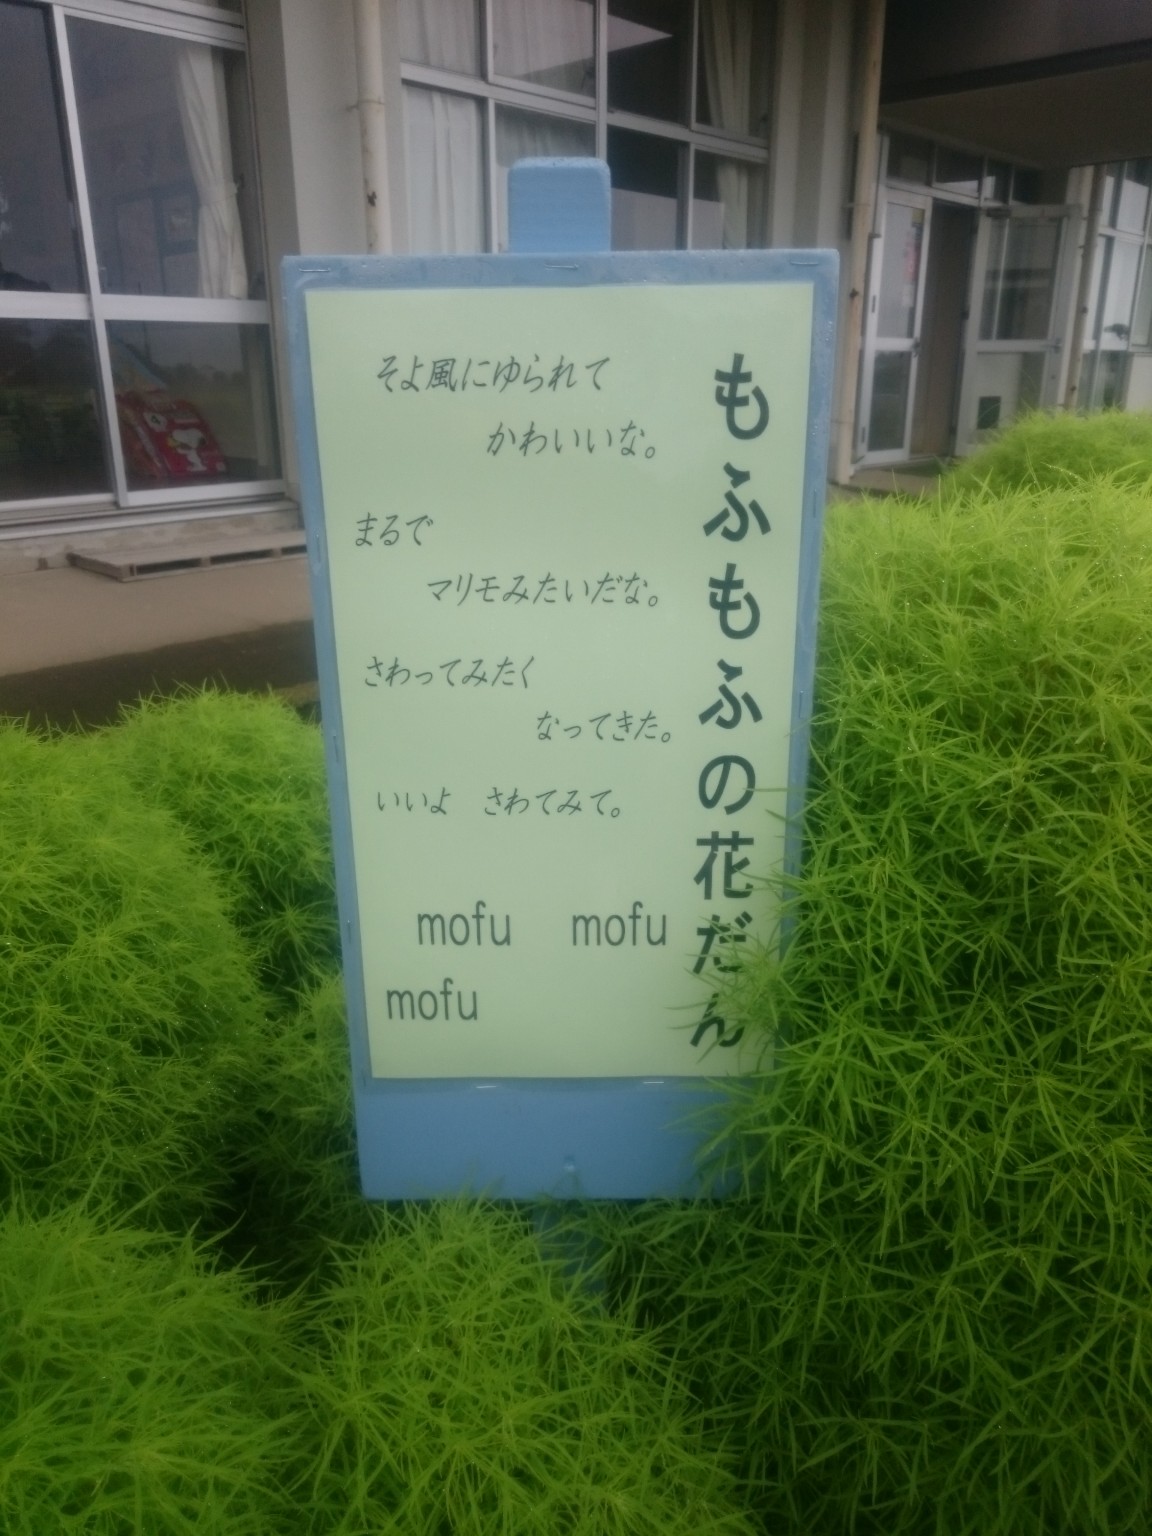 もふもふの花だん
そよ風にゆられて
かわいいな。
まるで
マリモみたいだな。
さわってみたく
なってきた。
いいよ さわてみて。
mofu mofu
mofu